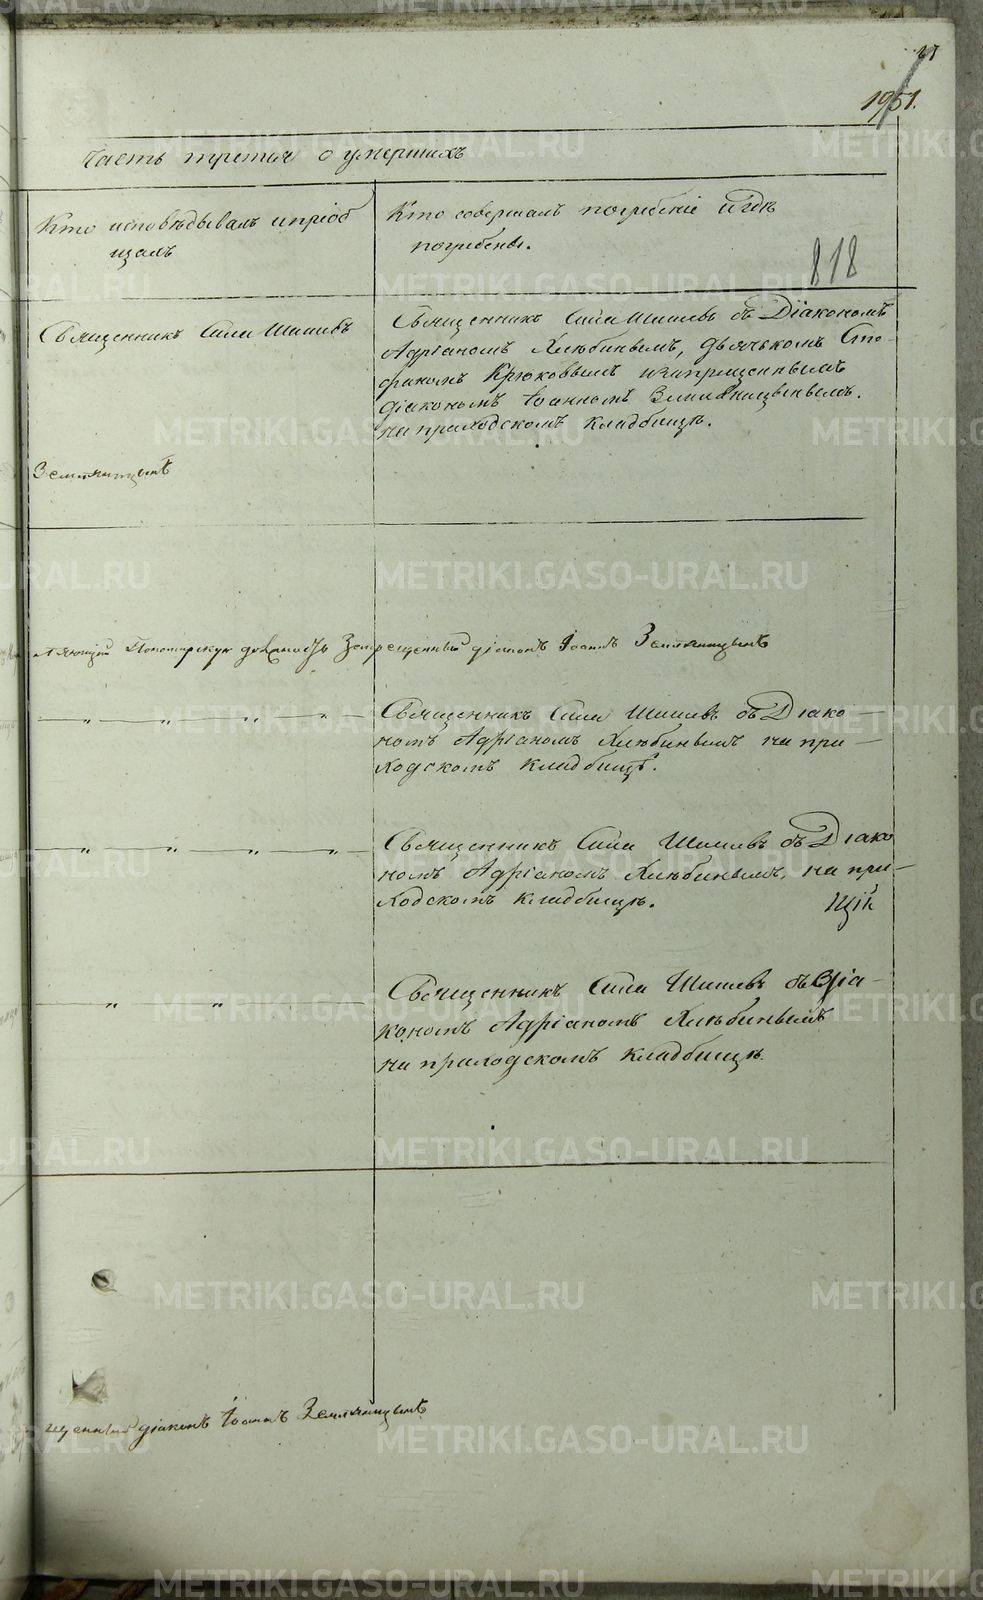 1951.
Часть третія о умершихъ
Кто исповѣдывалъ и пріоб
щалъ
Кто совершалъ погребеніе и гдѣ
погребены.
818
Священникъ Сила Шишевъ
Священникъ Сила Шишевъ съ Діакономъ
Адріаномъ Хлюбинымъ, дьячькомъ Сто-
фаномъ Крюковымъ и запрещеннымъ
діакономъ Іоанномъ Земляницынымъ.
на приходскомъ кладбищѣ.
Земляницынъ
Пономарскую должность Запрещенный діаконъ Іоаннъ Земляницынъ
— „ — „ — „ — „ —
Священникъ Сила Шишевъ съ Діако-
номъ Адріаномъ Хлюбинымъ на при-
ходскомъ кладбищѣ.
— „ — „ — „ — „ —
Священникъ Сила Шишевъ съ Діако
номъ Адріаномъ Хлюбинымъ, на при-
ходскомъ кладбищѣ.
— „ — „ —
Священникъ Сила Шишевъ съ Діа-
кономъ Адріаномъ Хлюбинымъ
на приходскомъ кладбищѣ.
щенный діаконъ Іоаннъ Земляницынъ
METRIKI.GASO-URAL.RU